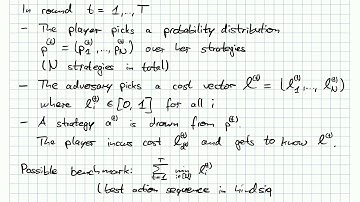 In round t = 1,..,T
- The player picks a probability distribution
p^(t) = (p_1^(t),..., p_N^(t)) over her strategies
(N strategies in total)
- The adversary picks a cost vector l^(t) = (l_1^(t),..., l_N^(t))
where l_i^(t) ∈ [0, 1] for all i
- A strategy a^(t) is drawn from p^(t)
The player incurs cost l_{a^(t)}^(t) and gets to know l^(t).
Possible benchmark: Σ_{t=1}^T min_{i∈[N]} l_i^(t)
(best action sequence in hindsig